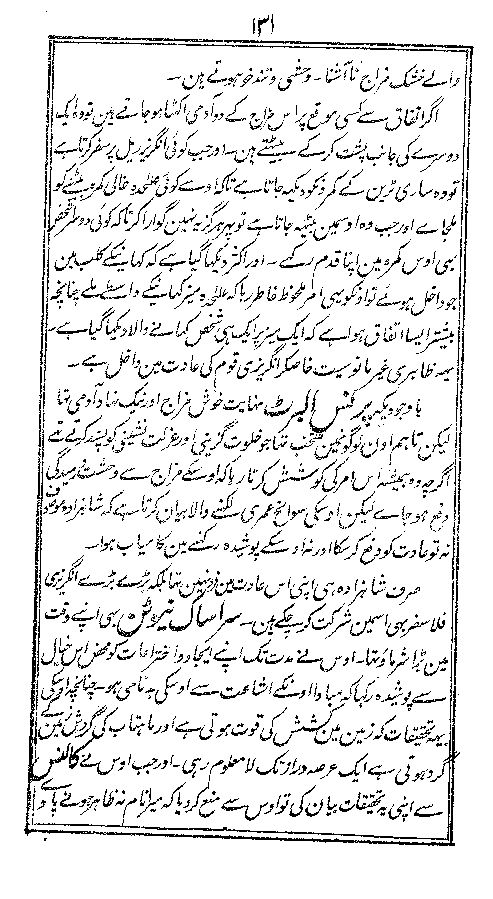 ۱۳۱
والے خشک مزاج نا آشنا - وحشی و تند خو ہوتے ہین -
اگر اتفاق سے کسی موقع پر اس مزاج کے دو آدمی اکٹھا ہو جاتے ہین تو وہ ایک
دوسرے کی جانب پشت کر کے بیٹھتے ہین - اور جب کوئی انگریز ریل پر سفر کرتا ہے
تو وہ ساری ٹرین کے کمرونکو دیکھ جاتا ہے تاکہ اوسے کوئی علٰحدہ خالی کمرہ بیٹھنے کو
ملجاے اور جب وہ اوسمین بیٹھ جاتا ہے تو پھر ہرگز یہ نہین گوارا کرتا کہ کوئی دوسرا شخص
بھی اوس کمرہ مین اپنا قدم رکھے - اور اکثر دیکھا گیا ہے کہ کھانیکے کلب مین
جو داخل ہوئے تو اونکو یہی امر ملحوظ خاطر رہا کہ علٰحدہ میز کھانیکے واسطے ملے چنانچہ
بیشتر ایسا اتفاق ہوا ہے کہ ایک میز پر ایک ہی شخص کھانے والا دیکھا گیا ہے -
یہہ ظاہری غیر مانوسیت خاصکر انگریزی قوم کی عادت مین داخل ہے -
باوجودیکہ پرنس البرٹ نہایت خوش مزاج اور نیک نہاد آدمی تھا
لیکن تاہم اون لوگونمین منتخب تھا جو خلوت گزینی اور عزلت نشینی کو پسند کرتے تھے
اگرچہ وہ ہمیشہ اس امر کی کوشش کرتا رہا کہ اوسکے مزاج سے وحشت و رمیدگی
رفع ہو جاے لیکن اوسکی سوانح عمری لکھنے والا بیان کرتا ہے کہ شاہزادہ موصوف
نہ تو عادت کو دفع کر سکا اور نہ اوسکے پوشیدہ رکھنے مین کامیاب ہوا -
صرف شاہزادہ ہی اپنی اس عادت مین فرد نہین تھا بلکہ بڑے بڑے انگریزی
فلاسفر بھی اسمین شرکت کر چکے ہین - سر اساک نیوٹن بھی اپنے وقت
مین بڑا شرماؤ تھا - اوس نے مدت تک اپنے ایجاد و اختراعات کو محض اس خیال
سے پوشیدہ رکھا کہ مبادا اونکے اشاعت سے اوسکی بدنامی ہو - چنانچہ اوسکی
یہہ تحقیقات کہ زمین مین کشش کی قوت ہوتی ہے اور ماہتاب کی گردش زمین کے
گرد ہوتی ہے ایک عرصہ دراز تک لا معلوم رہی - اور جب اوس نے کالنس
سے اپنی یہ تحقیقات بیان کی تو اوس سے منع کر دیا کہ میرا نام نہ ظاہر ہونے پاے